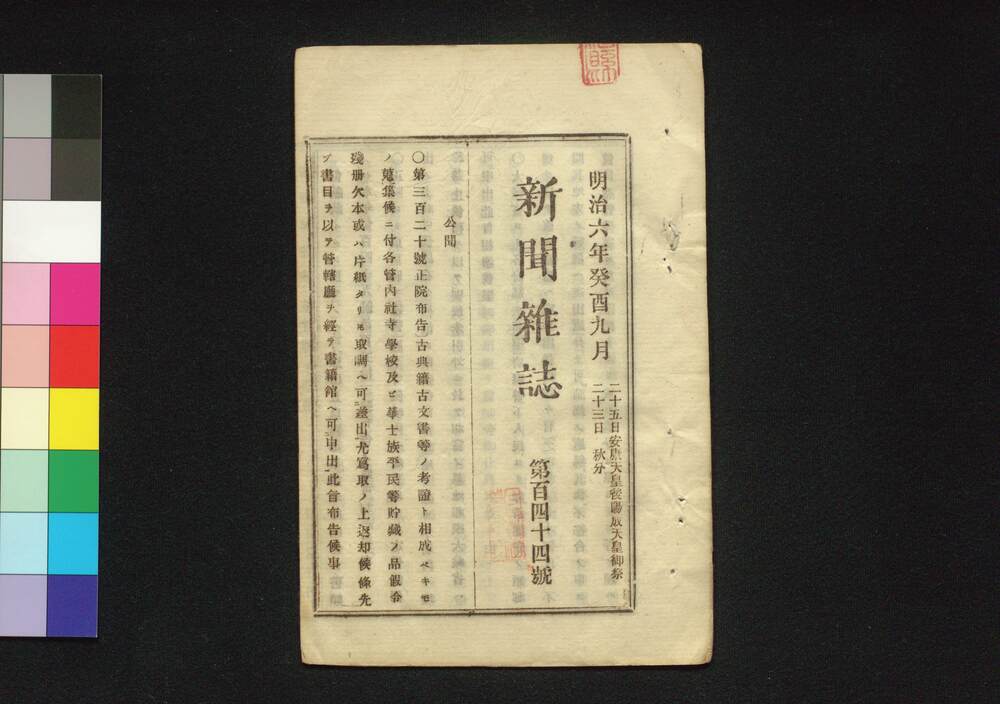 明治六年癸酉九月
二十五日安康天皇後陽成天皇御祭
二十三日 秋分
新聞雑誌
第百四十四號
公聞
〇第三百二十號正院布告古典籍古文書等ノ考證ト相成ベキモ
ノ蒐集候ニ付各管内社寺學校及ビ華士族平民等貯藏ノ品假令
殘册欠本或ハ片紙タリモ取調ヘ可差出尤寫取ノ上返却候條先
ヅ書目ヲ以テ管轄廳ヲ經テ書籍館ヘ可申出此旨布告候事